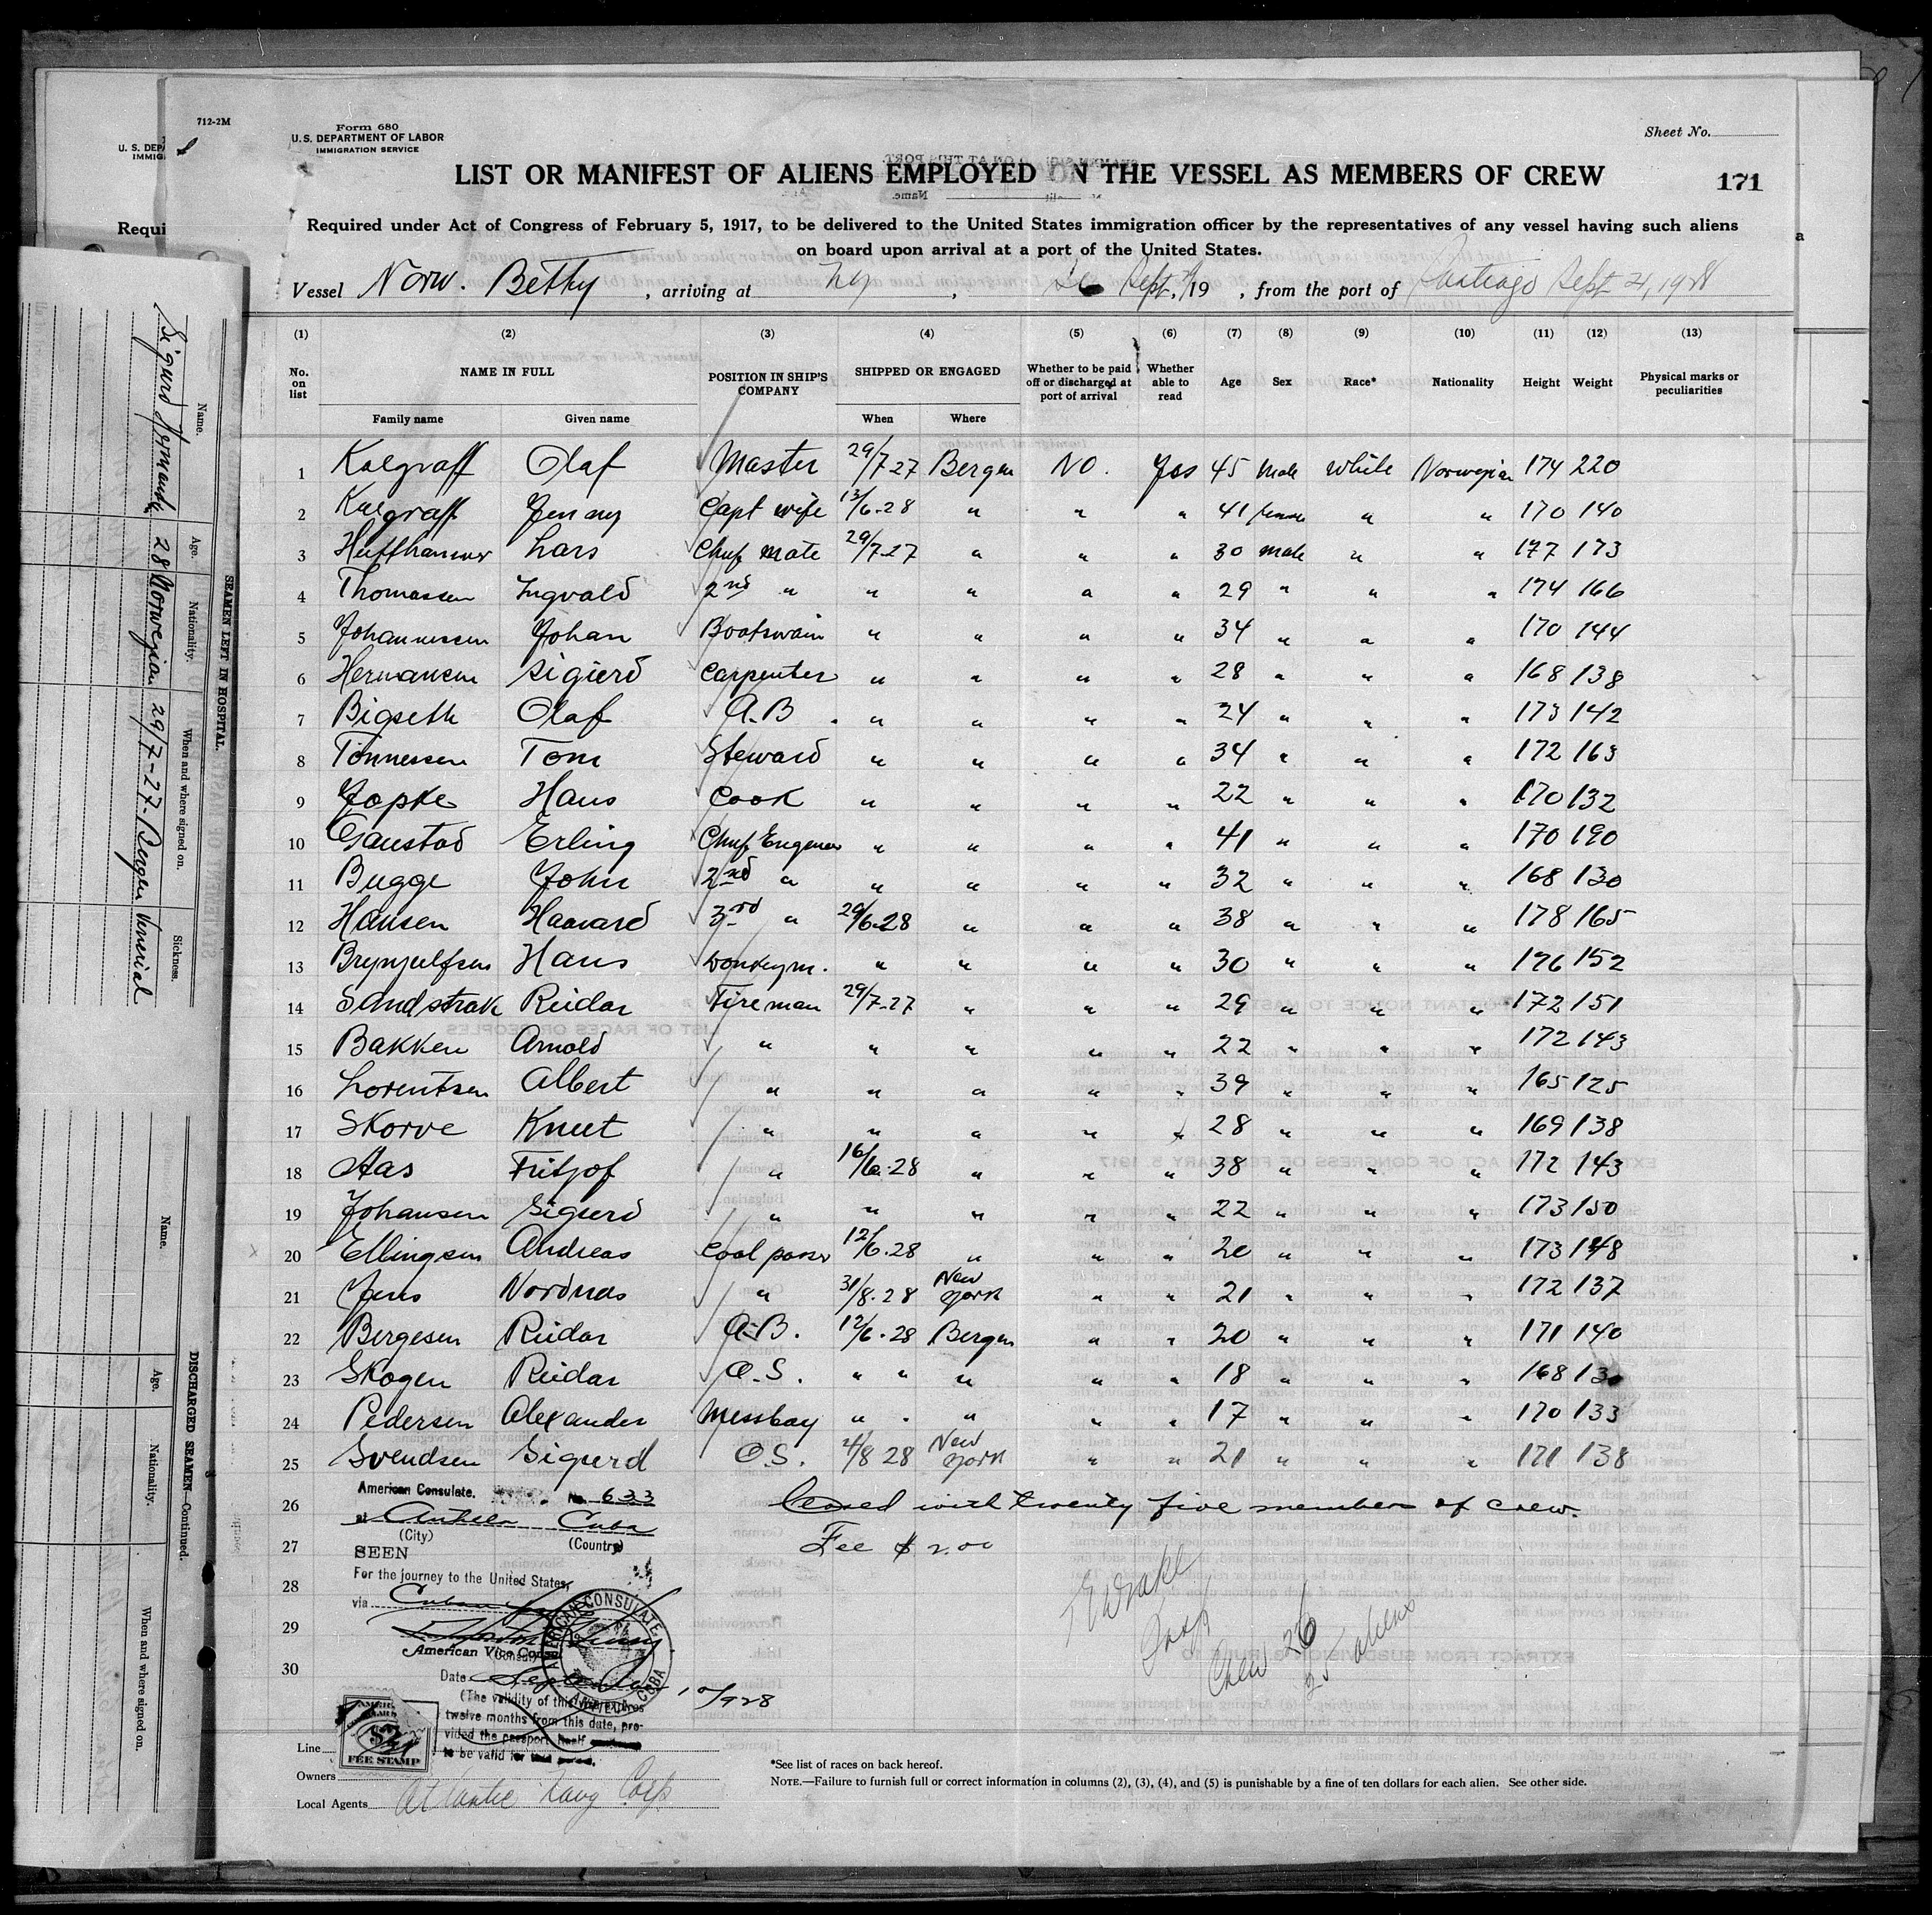 712-2M
Form 680
U.S. DEPARTMENT OF LABOR
IMMIGRATION SERVICE
Sheet No.
LIST OR MANIFEST OF ALIENS EMPLOYED ON THE VESSEL AS MEMBERS OF CREW
171
Required under Act of Congress of February 5, 1917, to be delivered to the United States immigration officer by the representatives of any vessel having such aliens
on board upon arrival at a port of the United States.
Vessel Norw. Betty, arriving at NY, 26 Sept, 19 , from the port of Santiago Sept 21, 1928
(1) (2) (3) (4) (5) (6) (7) (8) (9) (10) (11) (12) (13)
No. on list NAME IN FULL POSITION IN SHIP'S COMPANY SHIPPED OR ENGAGED Whether to be paid off or discharged at port of arrival Whether able to read Age Sex Race* Nationality Height Weight Physical marks or peculiarities
Family name Given name When Where
1 Kalgraff Olaf Master 29/7-27 Bergen No. Yes 45 Male White Norwegian 174 220
2 Kalgraff Jenny Capt wife 13/6-28 " " " 41 female " " 170 140
3 Lars Chief mate 29/7-27 " " " 30 male " " 177 173
4 Thomassen Ingvald 2nd " " " " " 29 " " " 174 166
5 Johannessen Johan Boatswain " " " " 34 " " " 170 144
6 Hermansen Sigurd Carpenter " " " " 28 " " " 168 138
7 Bigseth Olaf A.B. " " " " 24 " " " 173 142
8 Tonnessen Tom Steward " " " " 34 " " " 172 163
9 Jopke Hans Cook " " " " 22 " " " 170 132
10 Gaustad Erling Chief Engeneer " " " " 41 " " " 170 190
11 Bugge John 2nd " " " " " 32 " " " 168 130
12 Hansen Haavard 3rd " 29/6-28 " " " 38 " " " 178 165
13 Brynjulfsen Hans Donkeym. " " " " 30 " " " 176 152
14 Sandstrak Reidar Fireman 29/7-27 " " " 29 " " " 172 151
15 Bakken Arnold " " " " " 22 " " " 172 143
16 Lorentsen Albert " " " " " 39 " " " 165 125
17 Skorve Knut " " " " " 28 " " " 169 138
18 Aas Fritjof " 16/6-28 " " " 38 " " " 172 143
19 Johansen Sigurd " " " " " 22 " " " 173 150
20 Ellingsen Andreas Coal passer 12/6-28 " " " 20 " " " 173 148
21 Jens Nordnas " 31/8-28 New York " " 21 " " " 172 137
22 Bergesen Reidar A.B. 12/6-28 Bergen " " 20 " " " 171 140
23 Skogen Reidar O.S. " " " " " 18 " " " 168
24 Pedersen Alexander Messboy " " " " " 17 " " " 170 133
25 Svendsen Sigurd O.S. 4/8 28 New York " " 21 " " " 171 138
26 Closed with twenty five members of crew.
27 Fee $2.00
28
29
30
American Consulate. No. 633
at Antilla Cuba
(City) (Country)
SEEN
For the journey to the United States,
via
American Vice Consul
Date
1928
(The validity of this
twelve months from this date, pro-
vided the passport itself
to be valid for
AMERICAN CONSULATE
ANTILLA, CUBA
$2
FEE STAMP
Crew 26
25 aliens
Line
Owners
Local Agents Atlantic Navg Corp
*See list of races on back hereof.
NOTE.—Failure to furnish full or correct information in columns (2), (3), (4), and (5) is punishable by a fine of ten dollars for each alien. See other side.
SEAMEN LEFT IN HOSPITAL.
Name. Age. Nationality. When and where signed on. Sickness.
Sigurd Hermansen 28 Norwegian 29/7-27- Bergen Venerial
DISCHARGED SEAMEN—Continued.
Name. Age. Nationality. When and where signed on.
U. S. DEPA
IMMIG
Requi